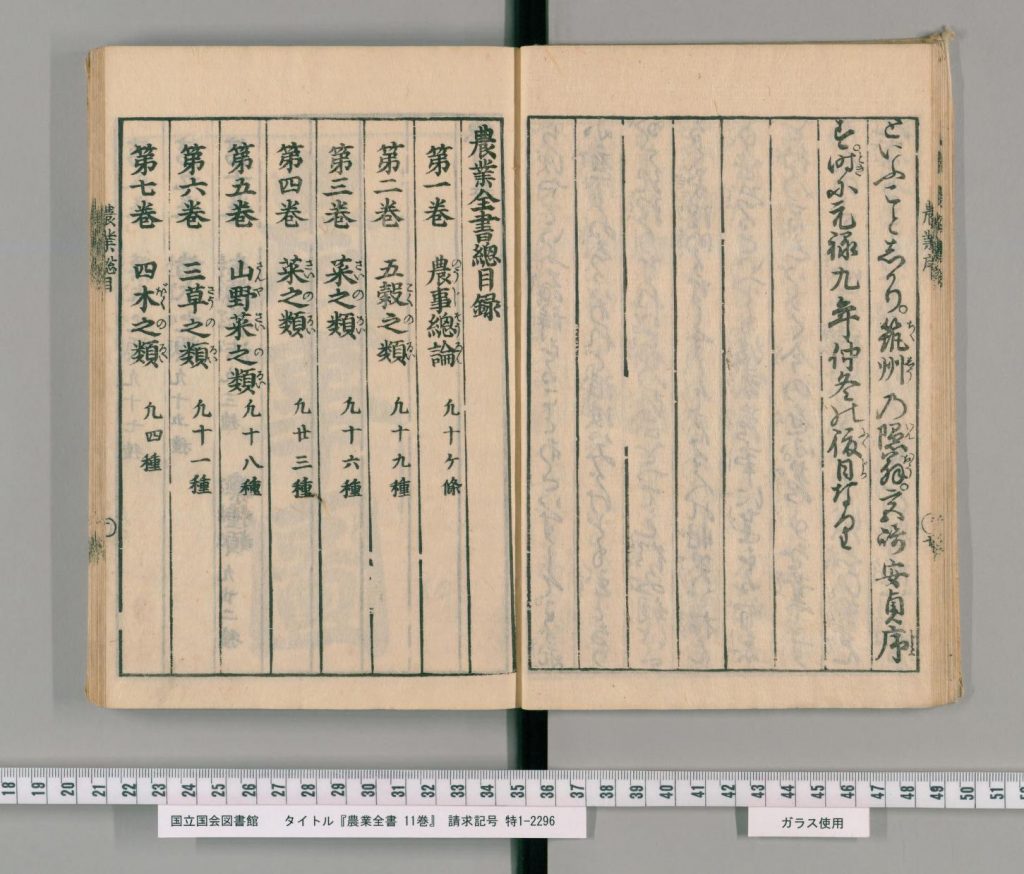 農業序
といふことしかり。筑州乃隠翁。宮崎安貞序
時に元禄九年仲冬
農業全書總目録
第一巻 農事總論 凡十ケ條
第二巻 五穀之類 凡十九種
第三巻 菜之類 凡十六種
第四巻 菜之類 凡廿三種
第五巻 山野菜之類 凡十八種
第六巻 三草之類 凡十一種
第七巻 四木之類 凡四種
農業總目
18 19 20 21 22 23 24 25 26 27 28 29 30 31 32 33 34 35 36 37 38 39 40 41 42 43 44 45 46 47 48 49 50 51 52
国立国会図書館 タイトル『農業全書 11巻』 請求記号 特1-2296
ガラス使用